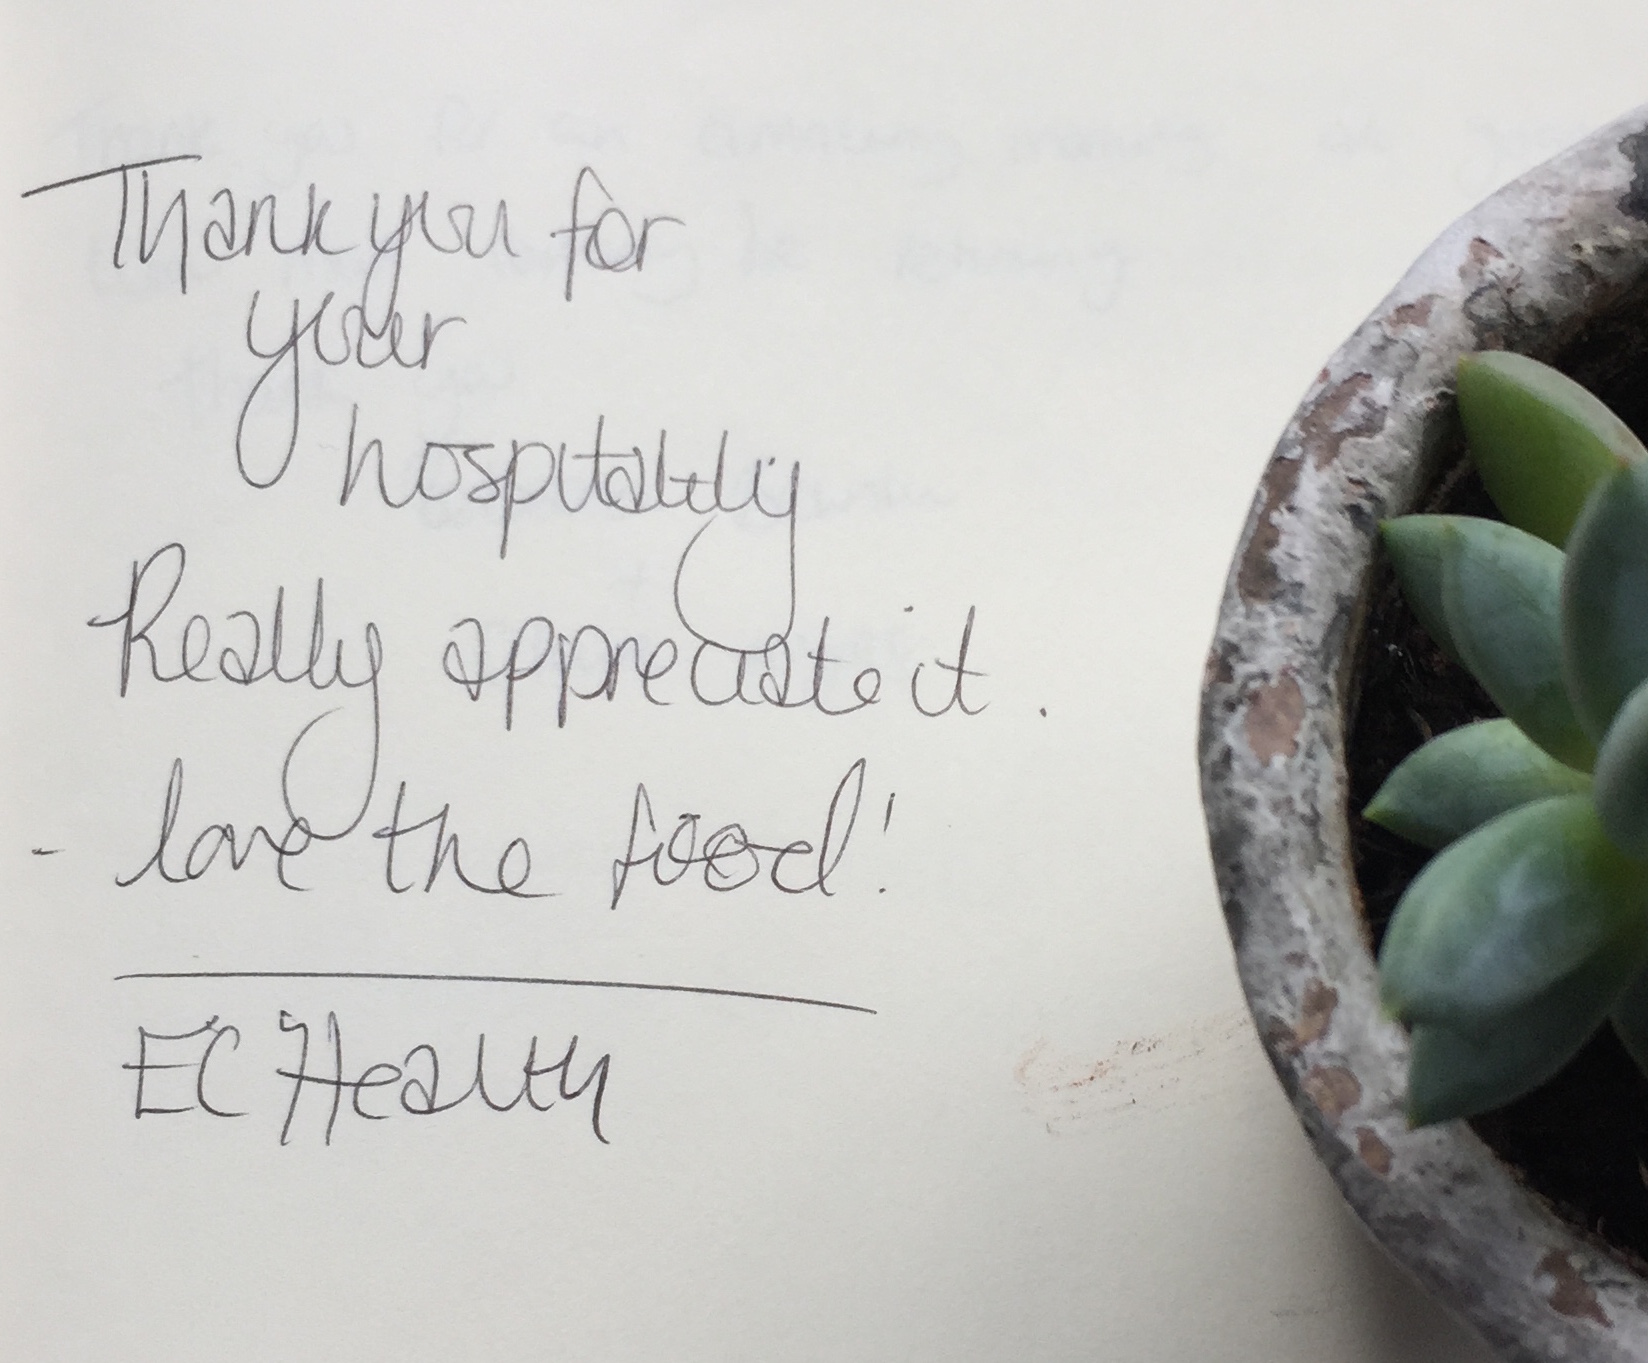 Thank you for
your
hospitality
Really appreciate it.
- love the food!
EC Health